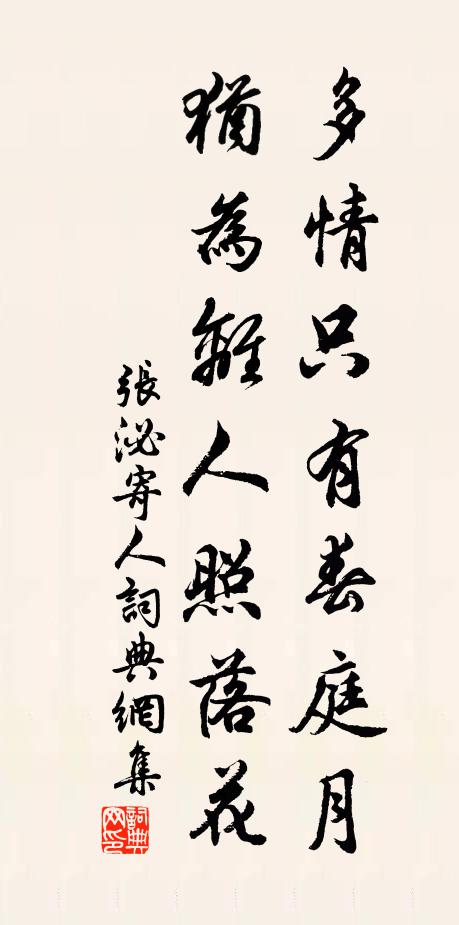 多情只有春庭月
猶為離人照落花
張泌寄人詞典網集
詞典網印